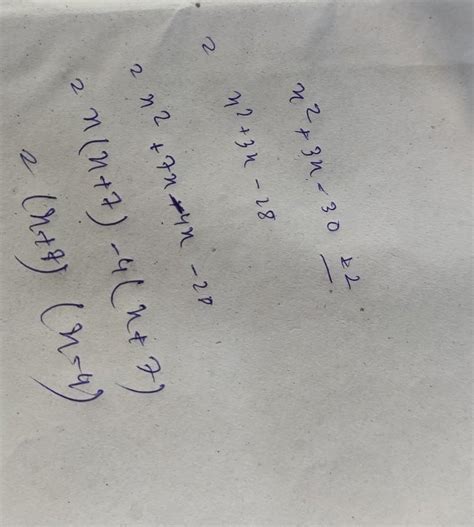 x² + 3x - 30 + 2
= x² + 3x - 28
= x² + 7x - 4x - 28
= x(x+7) - 4(x+7)
= (x+7) (x-4)